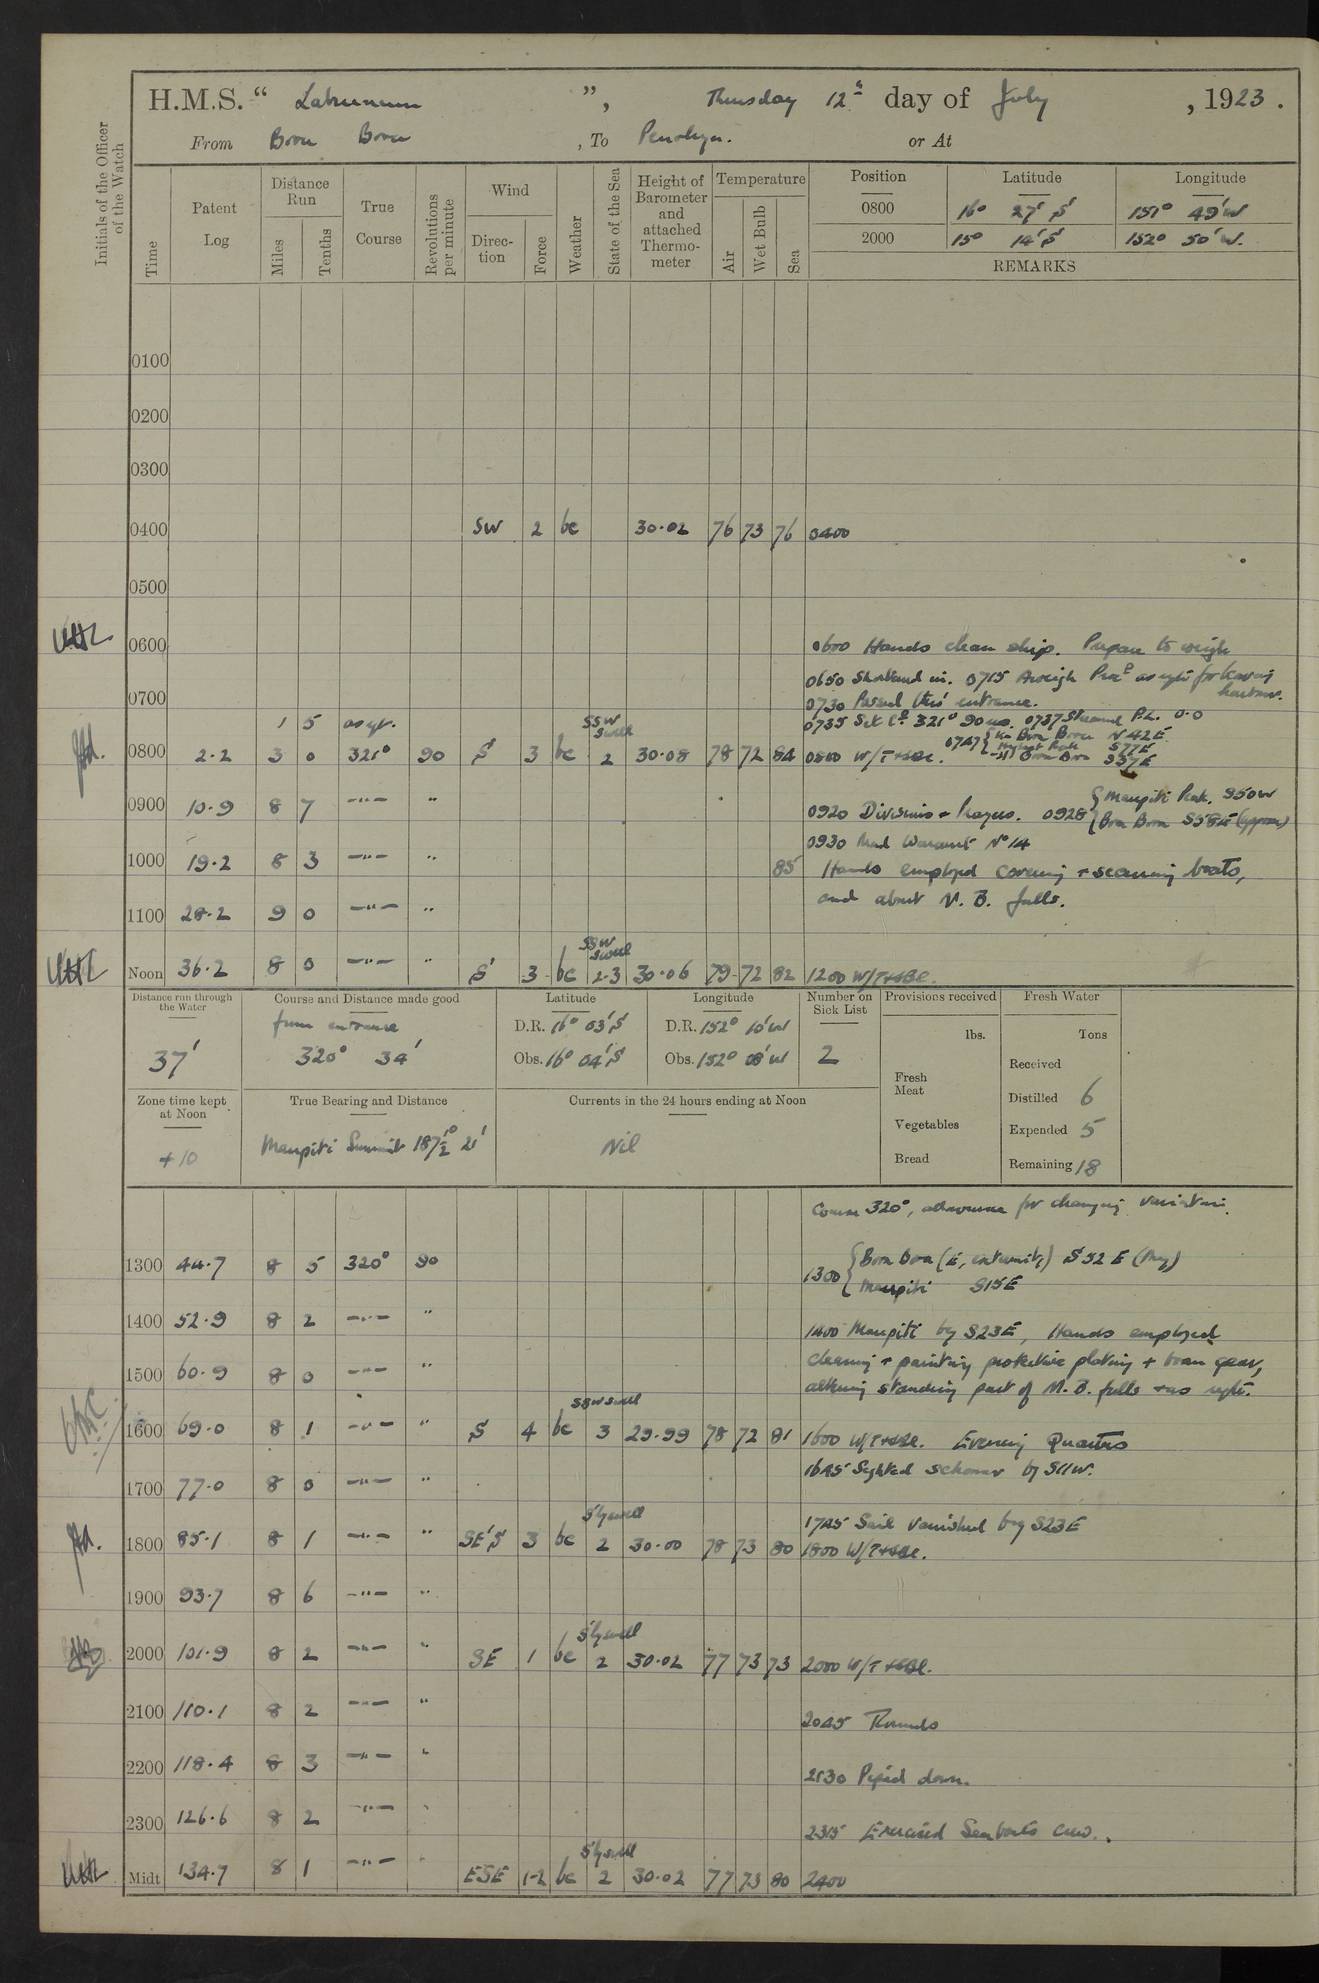 H.M.S. “ Laburnum ”, Thursday 12th day of July , 1923 .
From Bora Bora , To Penrhyn. or At
Initials of the Officer of the Watch
Time
Patent Log
Distance Run
Miles
Tenths
True Course
Revolutions per minute
Wind
Direction
Force
Weather
State of the Sea
Height of Barometer and attached Thermometer
Temperature
Air
Wet Bulb
Sea
Position Latitude Longitude
0800 16° 27' S 151° 49' W
2000 15° 14' S 152° 50' W.
REMARKS
0100
0200
0300
0400 SW 2 bc 30.02 76 73 76 0400
0500
0600 0600 Hands clean ship. Prepare to weigh
0650 Shortened in. 0715 Aweigh Proc? as req? for leaving harbour.
0700 0730 Passed thro' entrance.
1 5 as req. SSW swell 0735 Set Co 321° 90 revs. 0737 Streamed P.L. 0.0
0800 2.2 3 0 321° 90 S 3 bc 2 30.08 78 72 84 0800 W/T+SBE.
0747 Bora Bora N42E
Highest Peak S77E
Bora Bora S37E
0900 10.9 8 7 —"— " 0920 Divisions + Prayers. 0928 Maupiti Peak. S50W
Bora Bora S58E (approx)
0930 Read Warrant No 14
1000 19.2 8 3 —"— " 85 Hands employed covering + securing boats,
1100 28.2 9 0 —"— " and about M. B. falls.
SSW swell
Noon 36.2 8 0 —"— " S 3 bc 2-3 30.06 79 72 82 1200 W/T+SBE.
Distance run through the Water
37'
Course and Distance made good
from entrance
320° 34'
Latitude
D.R. 16° 03' S
Obs. 16° 04' S
Longitude
D.R. 152° 10' W
Obs. 152° 08' W
Number on Sick List
2
Provisions received
lbs.
Fresh Meat
Vegetables
Bread
Fresh Water
Tons
Received
Distilled 6
Expended 5
Remaining 18
Zone time kept at Noon
+10
True Bearing and Distance
Maupiti Summit 187½° 21'
Currents in the 24 hours ending at Noon
Nil
Course 320°, allowance for changing variation.
1300 44.7 8 5 320° 90 1300 Bora Bora (E, extremity) S52E (Mag)
Maupiti S15E
1400 52.9 8 2 —"— " 1400 Maupiti brg S23E, Hands employed
cleaning + painting protective plating + boom gear,
1500 60.9 8 0 —"— " altering standing part of M. B. falls + as reqte.
SSW swell
1600 69.0 8 1 —"— " S 4 bc 3 29.99 78 72 81 1600 W/T+SBE. Evening Quarters
1645 Sighted schooner brg S11W.
1700 77.0 8 0 —"— "
S'ly swell 1745 Sail vanished brg S23E
1800 85.1 8 1 —"— " SE'S 3 bc 2 30.00 78 73 80 1800 W/T+SBE.
1900 93.7 8 6 —"— "
S'ly swell
2000 101.9 8 2 —"— " SE 1 bc 2 30.02 77 73 73 2000 W/T+SBE.
2100 110.1 8 2 —"— " 2045 Rounds
2200 118.4 8 3 —"— " 2130 Piped down.
2300 126.6 8 2 —"— " 2315 Exercised Seaboats crew.
S'ly swell
Midt 134.7 8 1 —"— " ESE 1-2 bc 2 30.02 77 73 80 2400